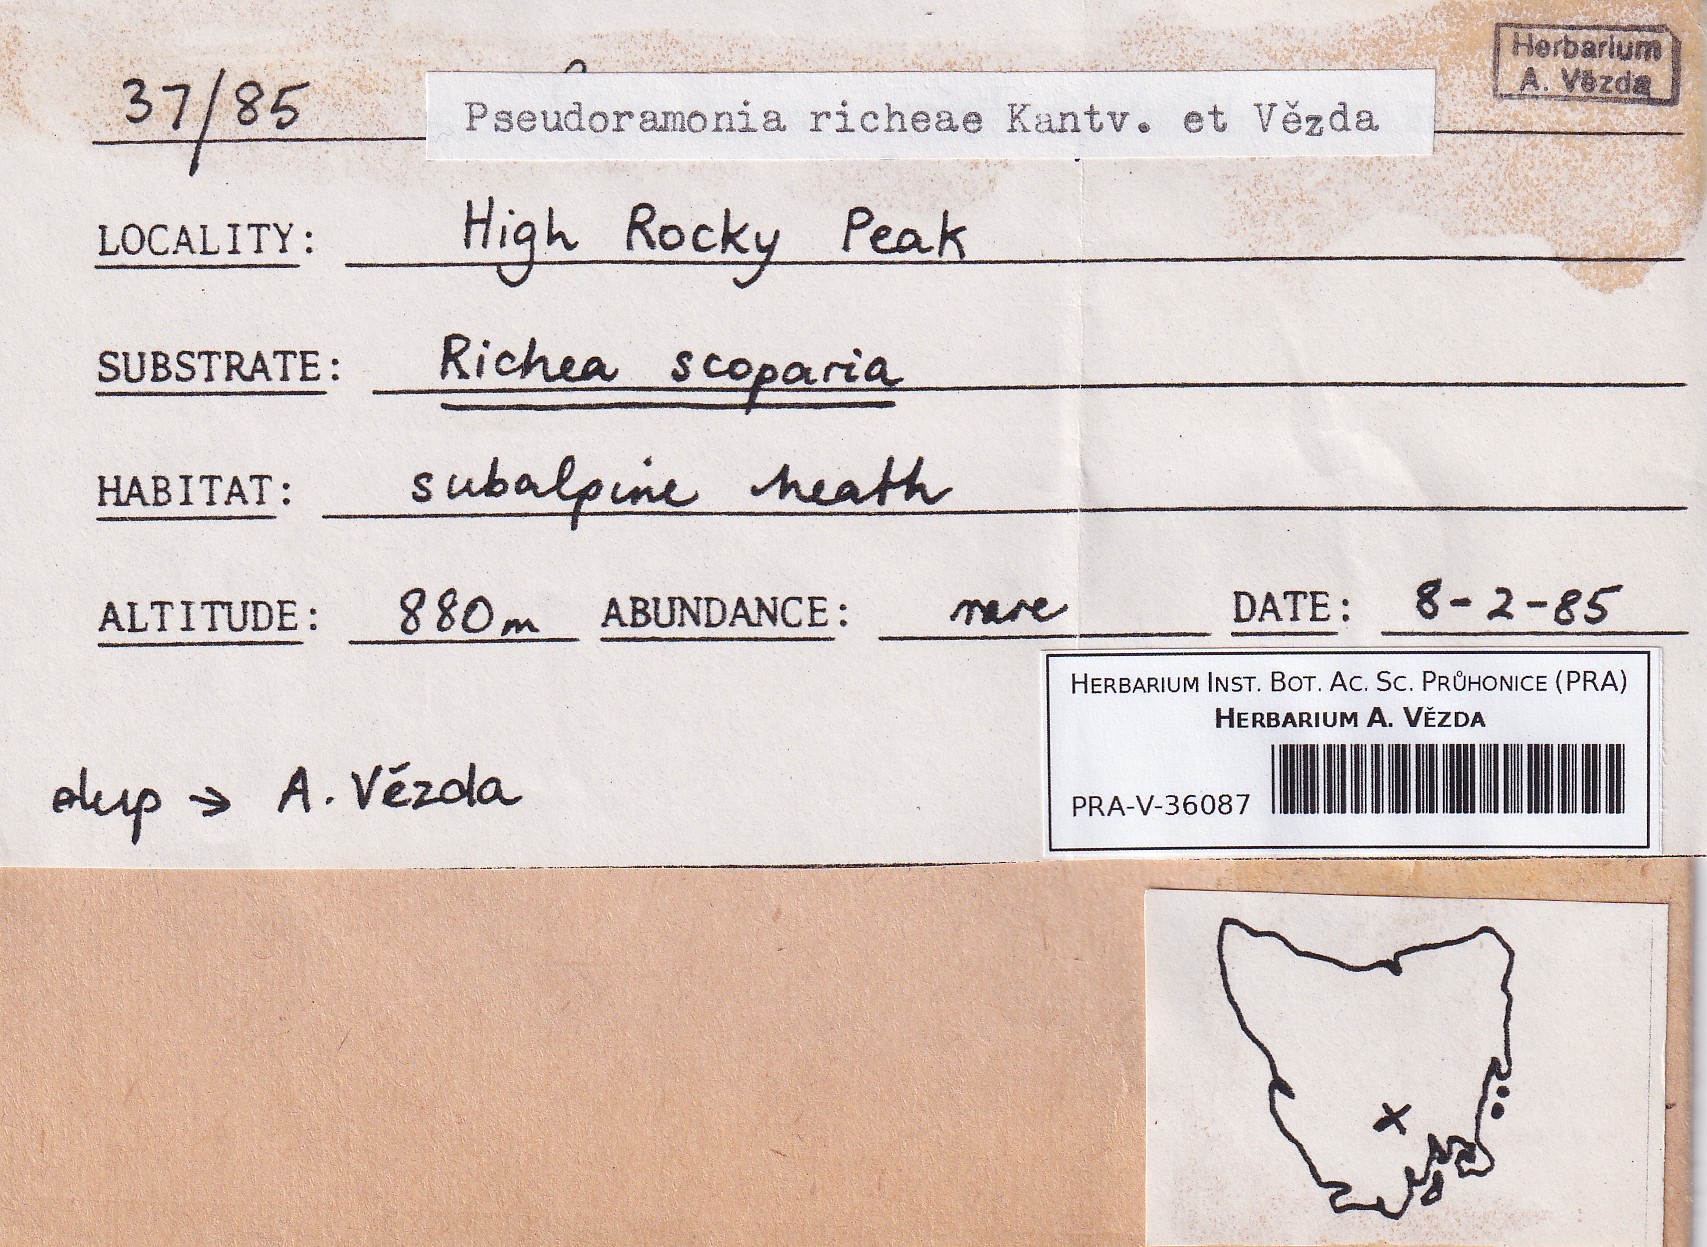 Herbarium
A. Vězda
37/85 Pseudoramonia richeae Kantv. et Vězda
LOCALITY: High Rocky Peak
SUBSTRATE: Richea scoparia
HABITAT: subalpine heath
ALTITUDE: 880m ABUNDANCE: rare DATE: 8-2-85
HERBARIUM INST. BOT. AC. SC. PRŮHONICE (PRA)
HERBARIUM A. VĚZDA
PRA-V-36087
dup → A. Vězda
X